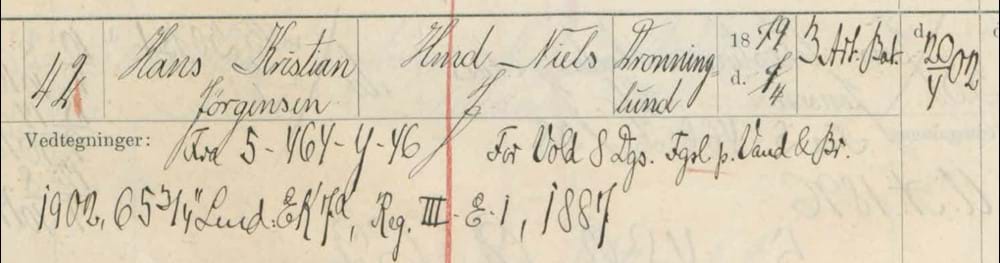 42 Hans Kristian Jörgensen Hmd Niels J Dronning-lund 18 79 d. 4/4 3 Art. Bat. d. 20/4 02
Vedtegninger: Fra 5-464-Y-46 For Vold 8 Dgs. Fgsl p. Vand & Br.
1902, 65 3/4" Lund: EK 7d, Reg. III-E-1, 1887